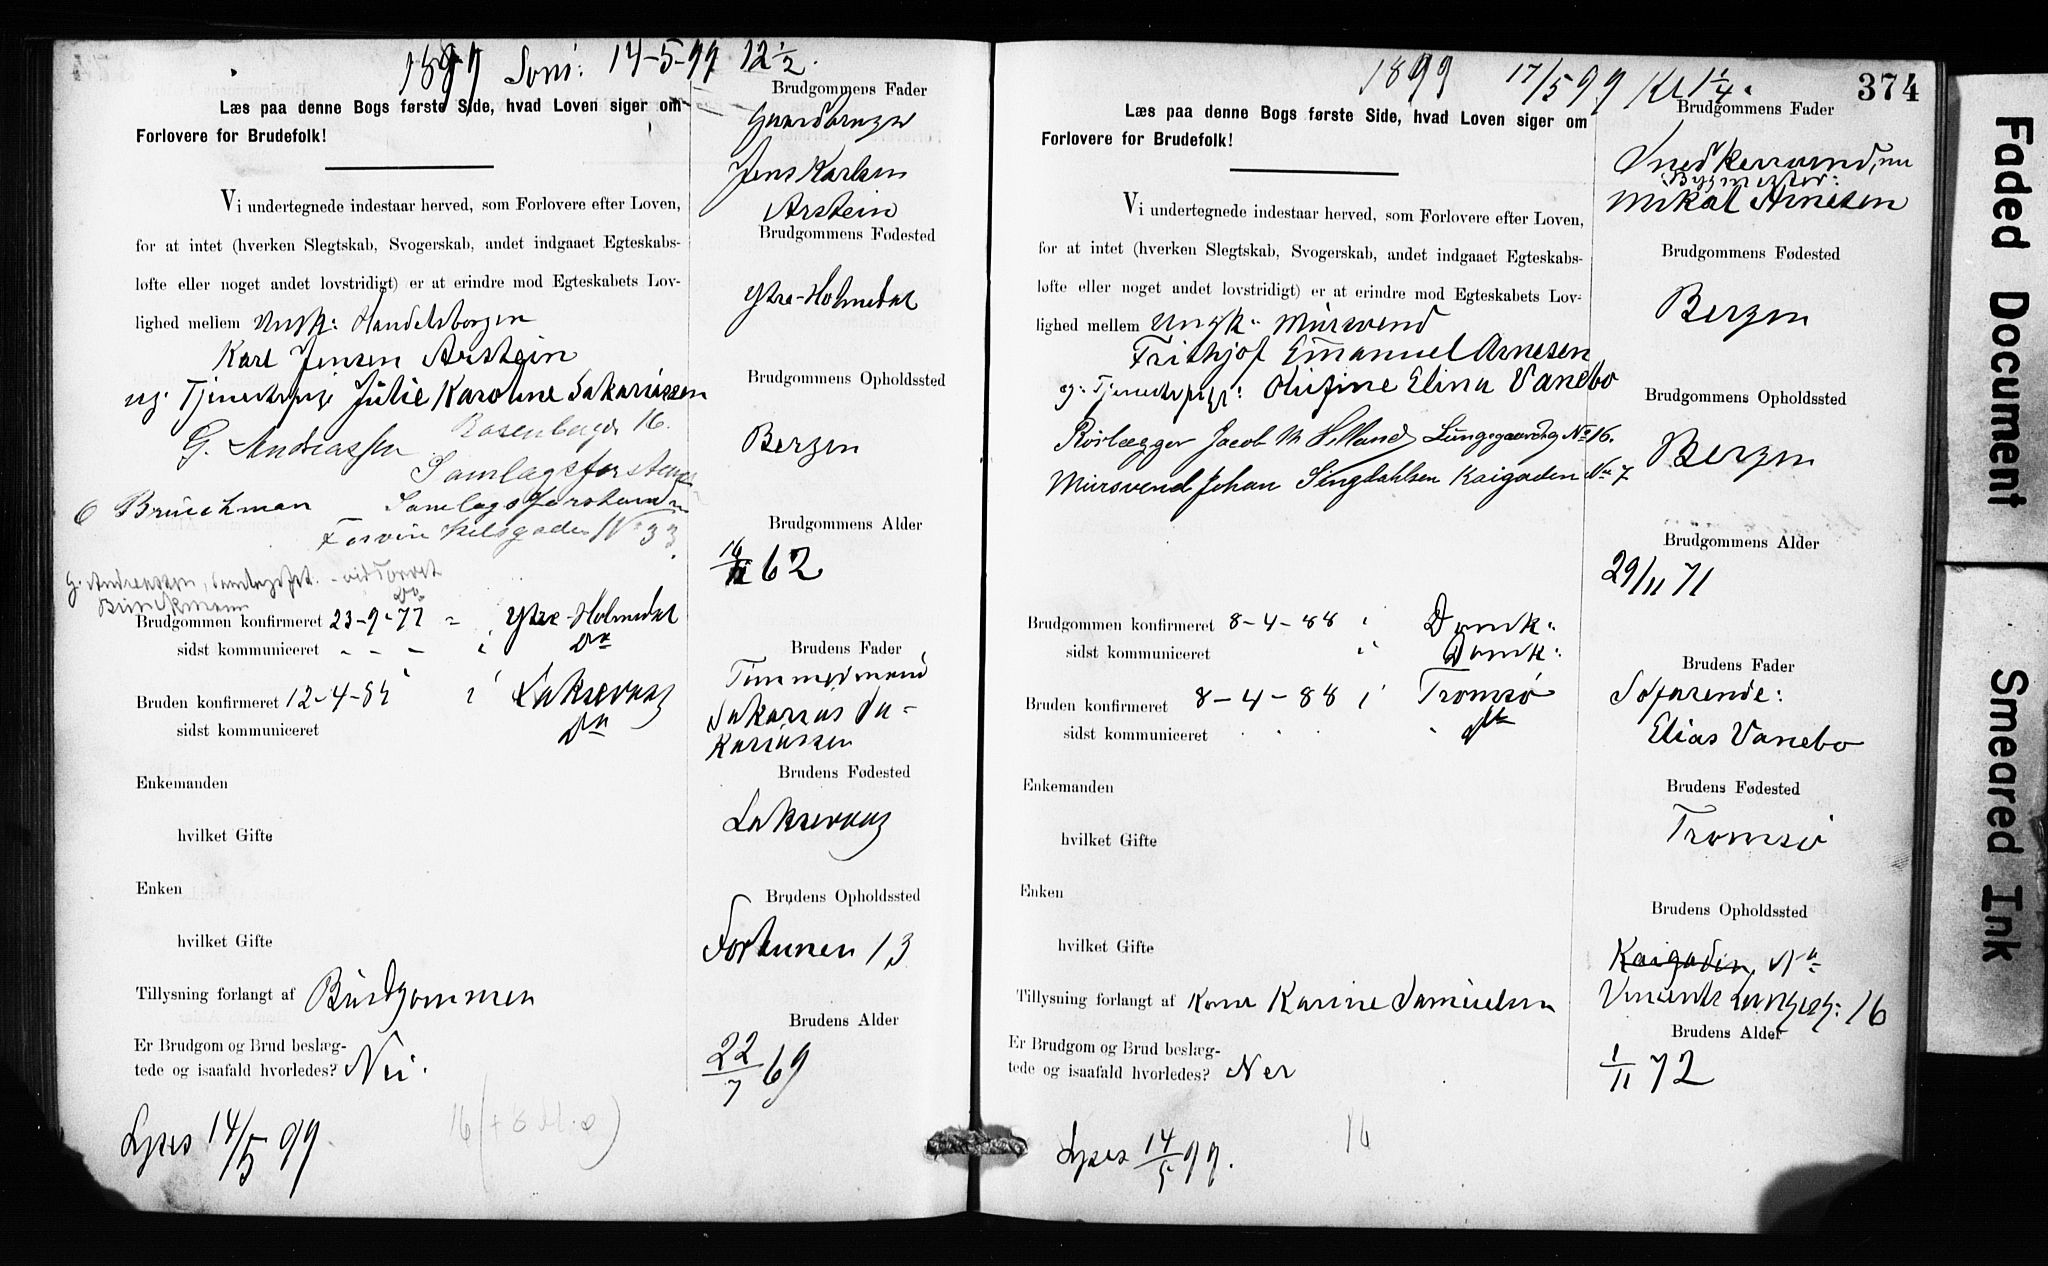 1899 Søni: 14-5-99 12½.
Læs paa denne Bogs første Side, hvad Loven siger om
Forlovere for Brudefolk!
Vi undertegnede indestaar herved, som Forlovere efter Loven,
for at intet (hverken Slegtskab, Svogerskab, andet indgaaet Egteskabs-
løfte eller noget andet lovstridigt) er at erindre mod Egteskabets Lov-
lighed mellem Ungk: Handelsborger
Karl Jensen Arstein
og: Tjenestepige Julie Karoline Sakariassen
G. Andreassen Rosenbergd 16.
Samlagsforstander
C Brinchman Samlagsforstander
No 33
G. Andreassen, Samlagsfst. - vid Torvet
Brinckmann Do
Brudgommen konfirmeret 23-9-77 = Ytre-Holmedal
sidst kommuniceret - - - i Do
Bruden konfirmeret 12-4-85 i Laksevaag
sidst kommuniceret Do
Enkemanden
hvilket Gifte
Enken
hvilket Gifte
Tillysning forlangt af Brudgommen
Er Brudgom og Brud beslæg-
tede og isaafald hvorledes? Nei.
Lyses 14/5 99.
Brudgommens Fader
Gaardbruger
Jens Karlsen
Arstein
Brudgommens Fødested
Ytre-Holmedal
Brudgommens Opholdssted
Bergen
Brudgommens Alder
62
Brudens Fader
Tømmermand
Sakarias Sa-
kariassen
Brudens Fødested
Laksevaag
Brudens Opholdssted
Fortunen 13
Brudens Alder
22/7 69
1899 17/5 99 Kl 1¼.
374
Læs paa denne Bogs første Side, hvad Loven siger om
Forlovere for Brudefolk!
Vi undertegnede indestaar herved, som Forlovere efter Loven,
for at intet (hverken Slegtskab, Svogerskab, andet indgaaet Egteskabs-
løfte eller noget andet lovstridigt) er at erindre mod Egteskabets Lov-
lighed mellem Ungk: Mursvend
Frithjof Emanuel Arnesen
og: Tjenestepige: Olufine Elina Vanebo
Rørlægger Jacob M Helland Lungegaardsg No 16.
Mursvend Johan Singdahlsen Kaigaden No 7
Brudgommen konfirmeret 8-4-88 i Domk:
sidst kommuniceret i Domk:
Bruden konfirmeret 8-4-88 i Tromsø
sidst kommuniceret . . . . Do
Enkemanden
hvilket Gifte
Enken
hvilket Gifte
Tillysning forlangt af Kone Karine Samuelsen
Er Brudgom og Brud beslæg-
tede og isaafald hvorledes? Nei
Lyses 14/5 99.
16
Brudgommens Fader
Snedkersvend, nu
Bygmester:
Mikal Arnesen
Brudgommens Fødested
Bergen
Brudgommens Opholdssted
Bergen
Brudgommens Alder
29/11 71
Brudens Fader
Søfarende:
Elias Vanebo
Brudens Fødested
Tromsø
Brudens Opholdssted
Kaigaden, No
16
Brudens Alder
1/11 72
Faded Document
Smeared Ink